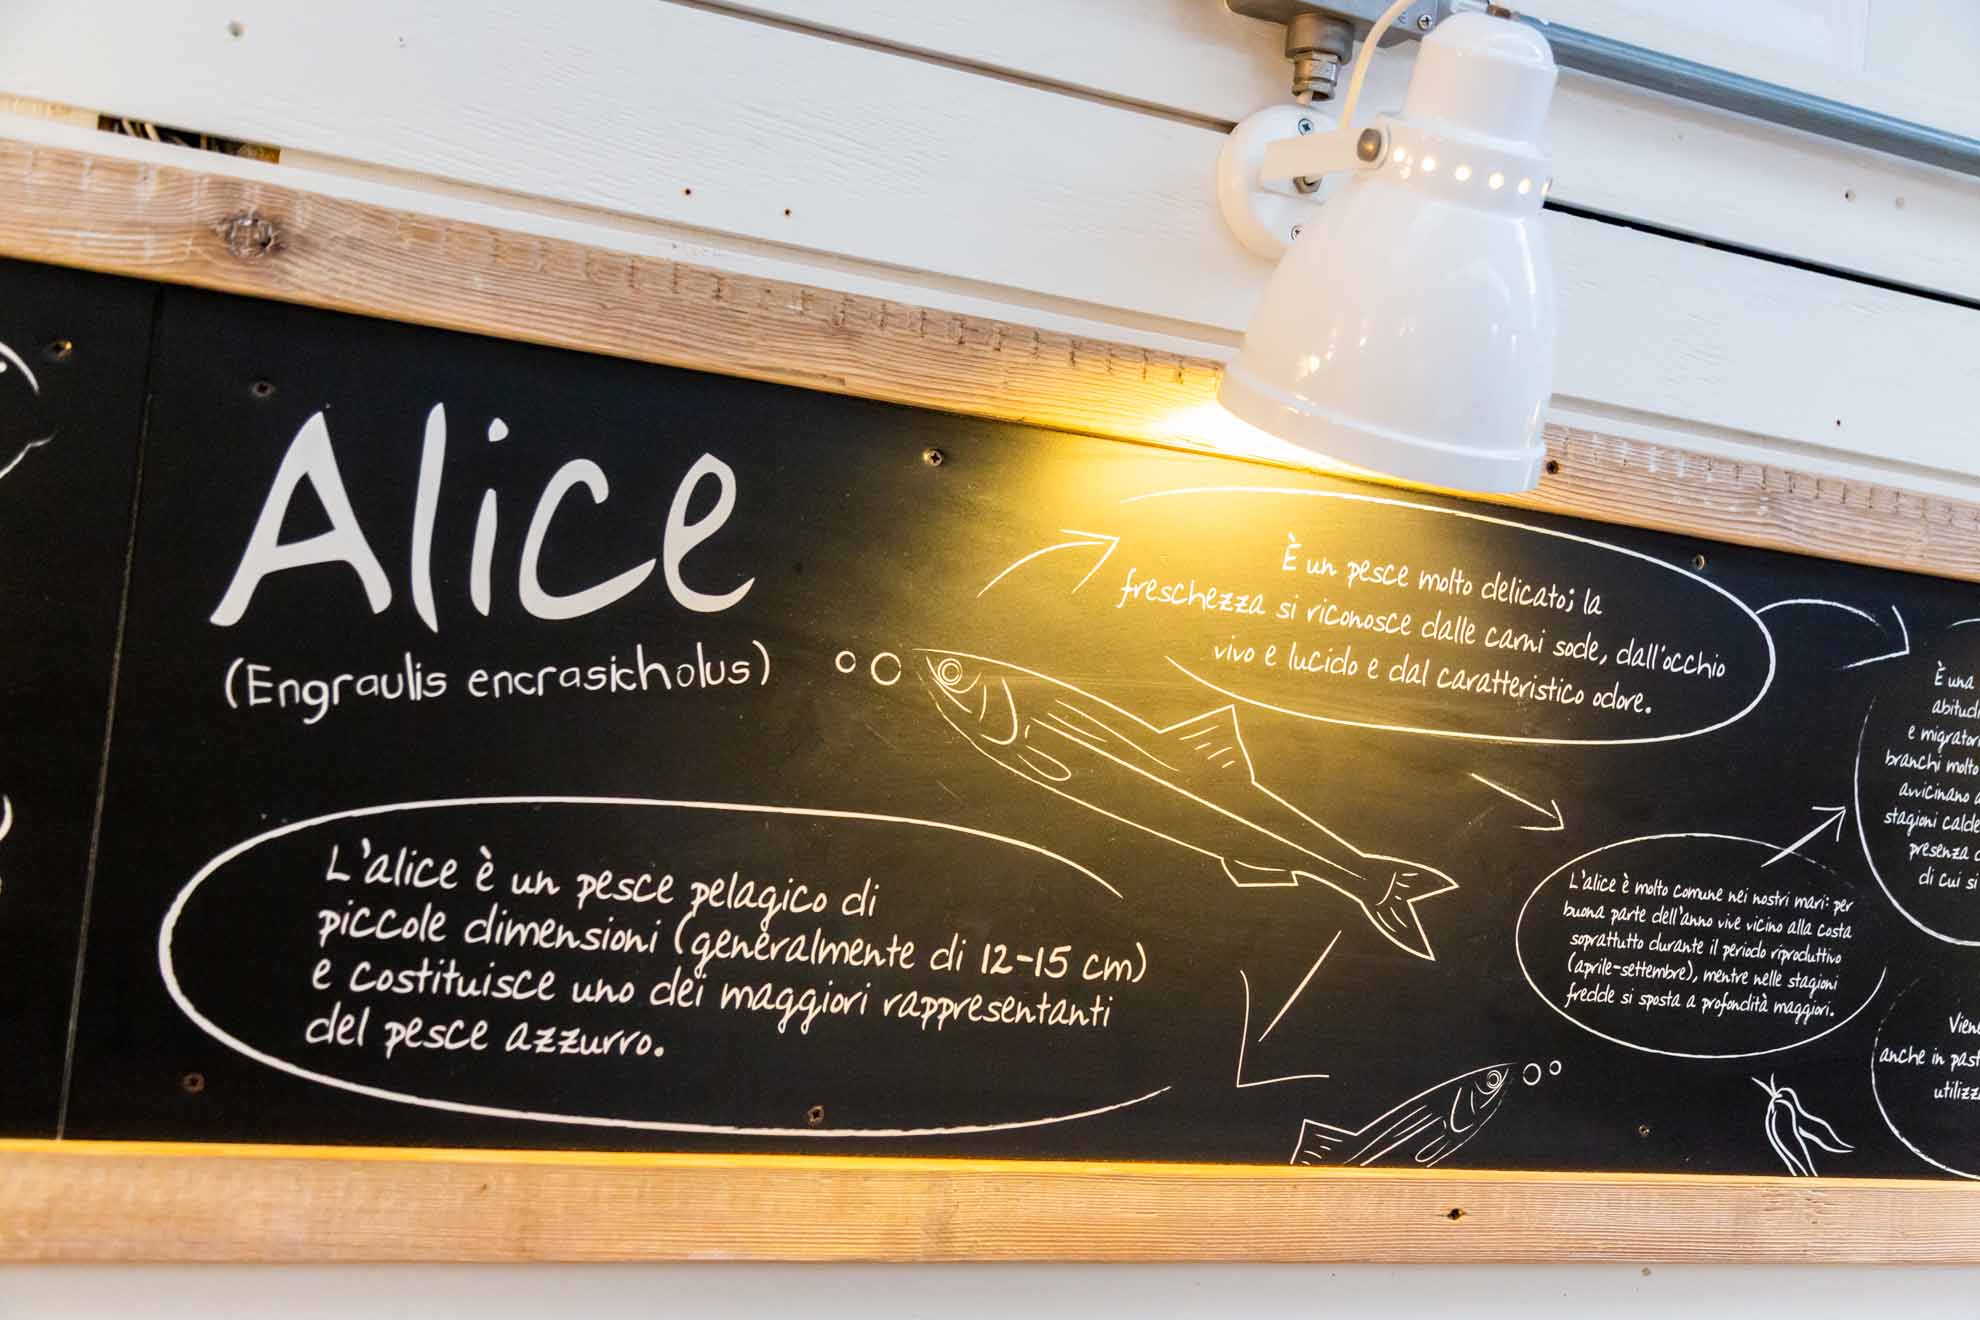 Alice
(Engraulis encrasicholus)
L'alice è un pesce pelagico di
piccole dimensioni (generalmente di 12-15 cm)
e costituisce uno dei maggiori rappresentanti
del pesce azzurro.
È un pesce molto delicato; la
freschezza si riconosce dalle carni sode, dall'occhio
vivo e lucido e dal caratteristico odore.
L'alice è molto comune nei nostri mari: per
buona parte dell'anno vive vicino alla costa
soprattutto durante il periodo riproduttivo
(aprile-settembre), mentre nelle stagioni
fredde si sposta a profondità maggiori.
È una
e
branchi molto
avvicinano
stagioni calde
presenza
di cui si
anche in